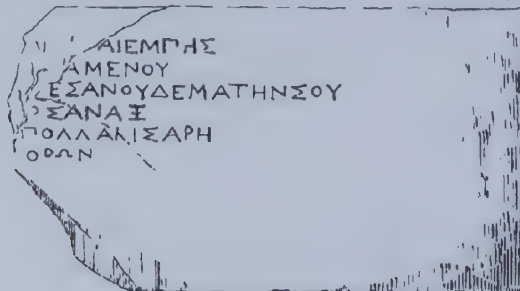 ΑΙΕΜΠΗΣ
ΑΜΕΝΟΥ
ΕΣΑΝΟΥΔΕΜΑΤΗΝΣΟΥ
ΣΑΝΑΞ
ΠΟΛΛΑΚΙΣΑΡΗ
ΟΡΩΝ